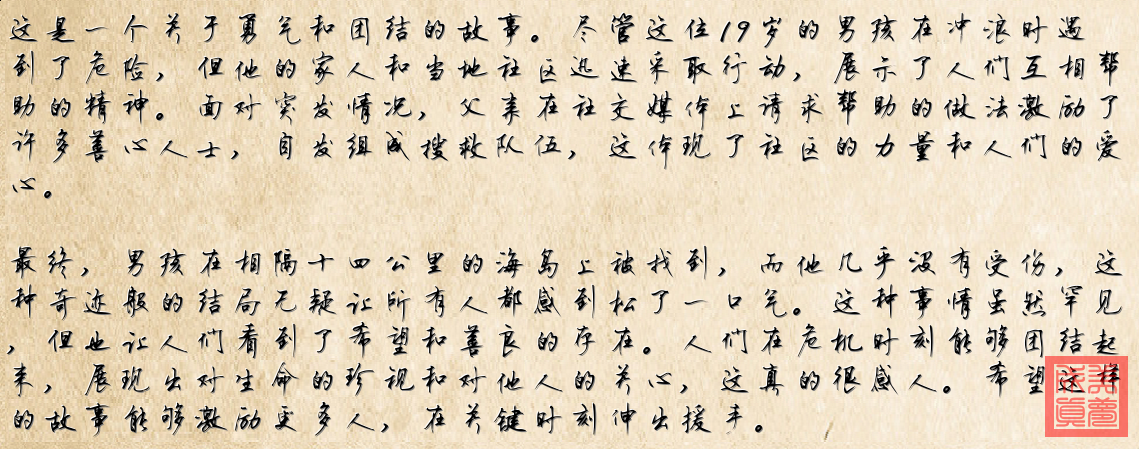 这是一个关于勇气和团结的故事。尽管这位19岁的男孩在冲浪时遇
到了危险，但他的家人和当地社区迅速采取行动，展示了人们互相帮
助的精神。面对突发情况，父亲在社交媒体上请求帮助的做法激励了
许多善心人士，自发组成搜救队伍，这体现了社区的力量和人们的爱
心。
最终，男孩在相隔十四公里的海岛上被找到，而他几乎没有受伤，这
种奇迹般的结局无疑让所有人都感到松了一口气。这种事情虽然罕见
，但也让人们看到了希望和善良的存在。人们在危机时刻能够团结起
来，展现出对生命的珍视和对他人的关心，这真的很感人。希望这样
的故事能够激励更多人，在关键时刻伸出援手。